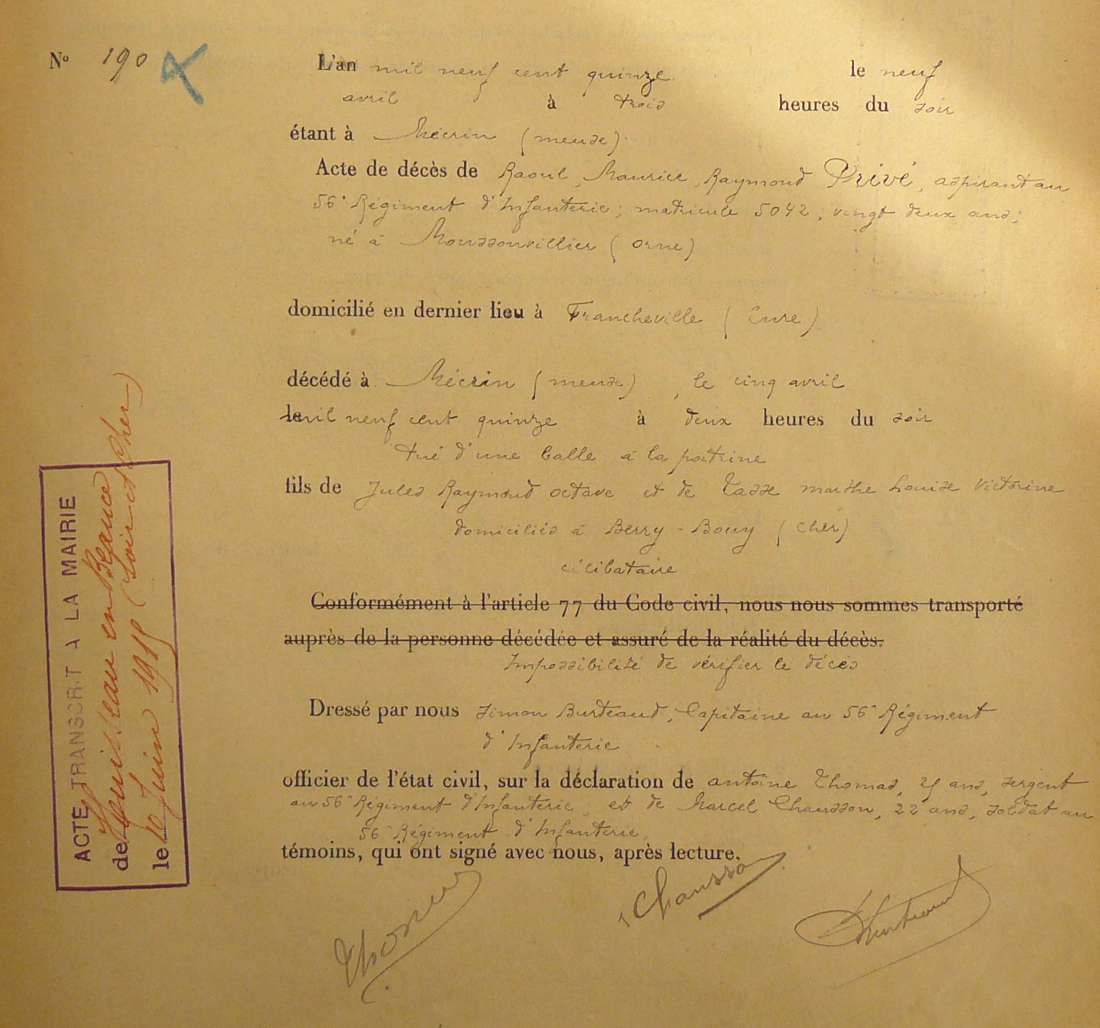 N° 190
L'an mil neuf cent quinze le neuf
avril à trois heures du soir
étant à Mécrin (meuse)
Acte de décès de Raoul, Maurice, Raymond Privé, aspirant au
56e Régiment d'Infanterie; matricule 5042, vingt deux ans;
né à Moussonvillier (orne)
domicilié en dernier lieu à Francheville (Eure)
décédé à Mécrin (meuse), le cinq avril
le mil neuf cent quinze à deux heures du soir
tué d'une balle à la poitrine
fils de Jules Raymond octave et de Tasse marthe Louise Victorine
domiciliés à Berry-Bouy (Cher)
célibataire
Conformément à l'article 77 du Code civil, nous nous sommes transporté
auprès de la personne décédée et assuré de la réalité du décès.
Impossibilité de vérifier le décès
Dressé par nous Simon Burteaud, Capitaine au 56e Régiment
d'Infanterie
officier de l'état civil, sur la déclaration de antoine Thomas, ans, sergent
au 56e Régiment d'Infanterie, et de Marcel Chausson, 22 ans, soldat au
56e Régiment d'Infanterie
témoins, qui ont signé avec nous, après lecture.
Thomas Chausson Burteaud
ACTE TRANSCRIT A LA MAIRIE
de en Beauce
le Juin 1915 (Loir et Cher)